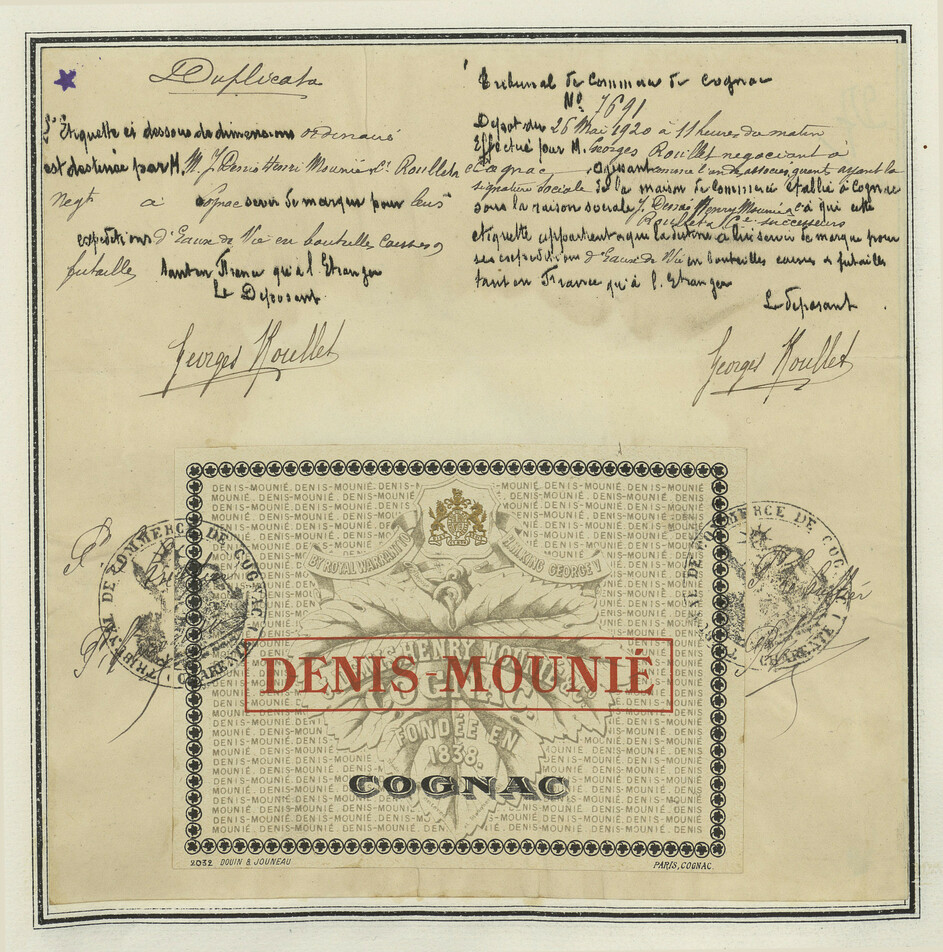 Duplicata
L'Etiquette ci dessous de dimensions ordinaire
est destinée par M. M. J. Denis Henri Mounié & Cº Roullet & Cº
Negts à Cognac servir de marque pour leurs
expeditions d'Eaux de Vie en bouteilles caisses,
futailles tant en France qu'à l'Etranger
Le Déposant
Georges Roullet
Tribunal de Commerce de Cognac
Nº 7691
Dépot du 26 Mai 1920 à 11 heures du matin
Effectué par M. Georges Roullet negociant à
Cognac agissant comme l'un des associés ayant la
signature sociale de la maison de Commerce établie à Cognac
sous la raison sociale J. Denis Henry Mounié & Cº
Roullet & Cie successeurs à qui cette
etiquette appartient a qui la destine à lui servir de marque pour
ses expeditions d'Eaux de Vie en bouteilles caisses & futailles
tant en France qu'à l'Etranger
Le déposant
Georges Roullet
DENIS-MOUNIÉ. DENIS-MOUNIÉ. DENIS-MOUNIÉ
BY ROYAL WARRANT TO H.M. KING GEORGE V
HENRY MOUNIÉ
DENIS-MOUNIÉ
COGNAC.
FONDÉE EN
1838.
COGNAC
2032 DOUIN & JOUNEAU
PARIS, COGNAC.
TRIBUNAL DE COMMERCE DE COGNAC (CHARENTE)
TRIBUNAL DE COMMERCE DE COGNAC (CHARENTE)